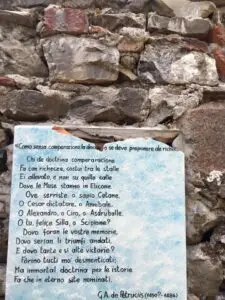 «Como senza comparazione la doctrina se deve preponere a le richeze
Chi de doctrina compararacione
Fa con richeze, costui tra le stalle
Ei allevato, e non su quello calle
Dove le Muse stanno in Elicone.
Ove serristi o savio Catone.
O Cesar dictatore, o Annibale.
O Alexandro, o Ciro, o Asdruballe.
O tu, felice Silla, o Scipione?
Dove foran le vostre memorie,
Dove sersan li triumfi andati,
E dove tante e sì alte victorie?
Fórino tucti mo' desmenticati;
Ma immortal doctrina per le istorie
Fa che in eterno site nominati.
G.A. de Petruciis (1450?-1486)